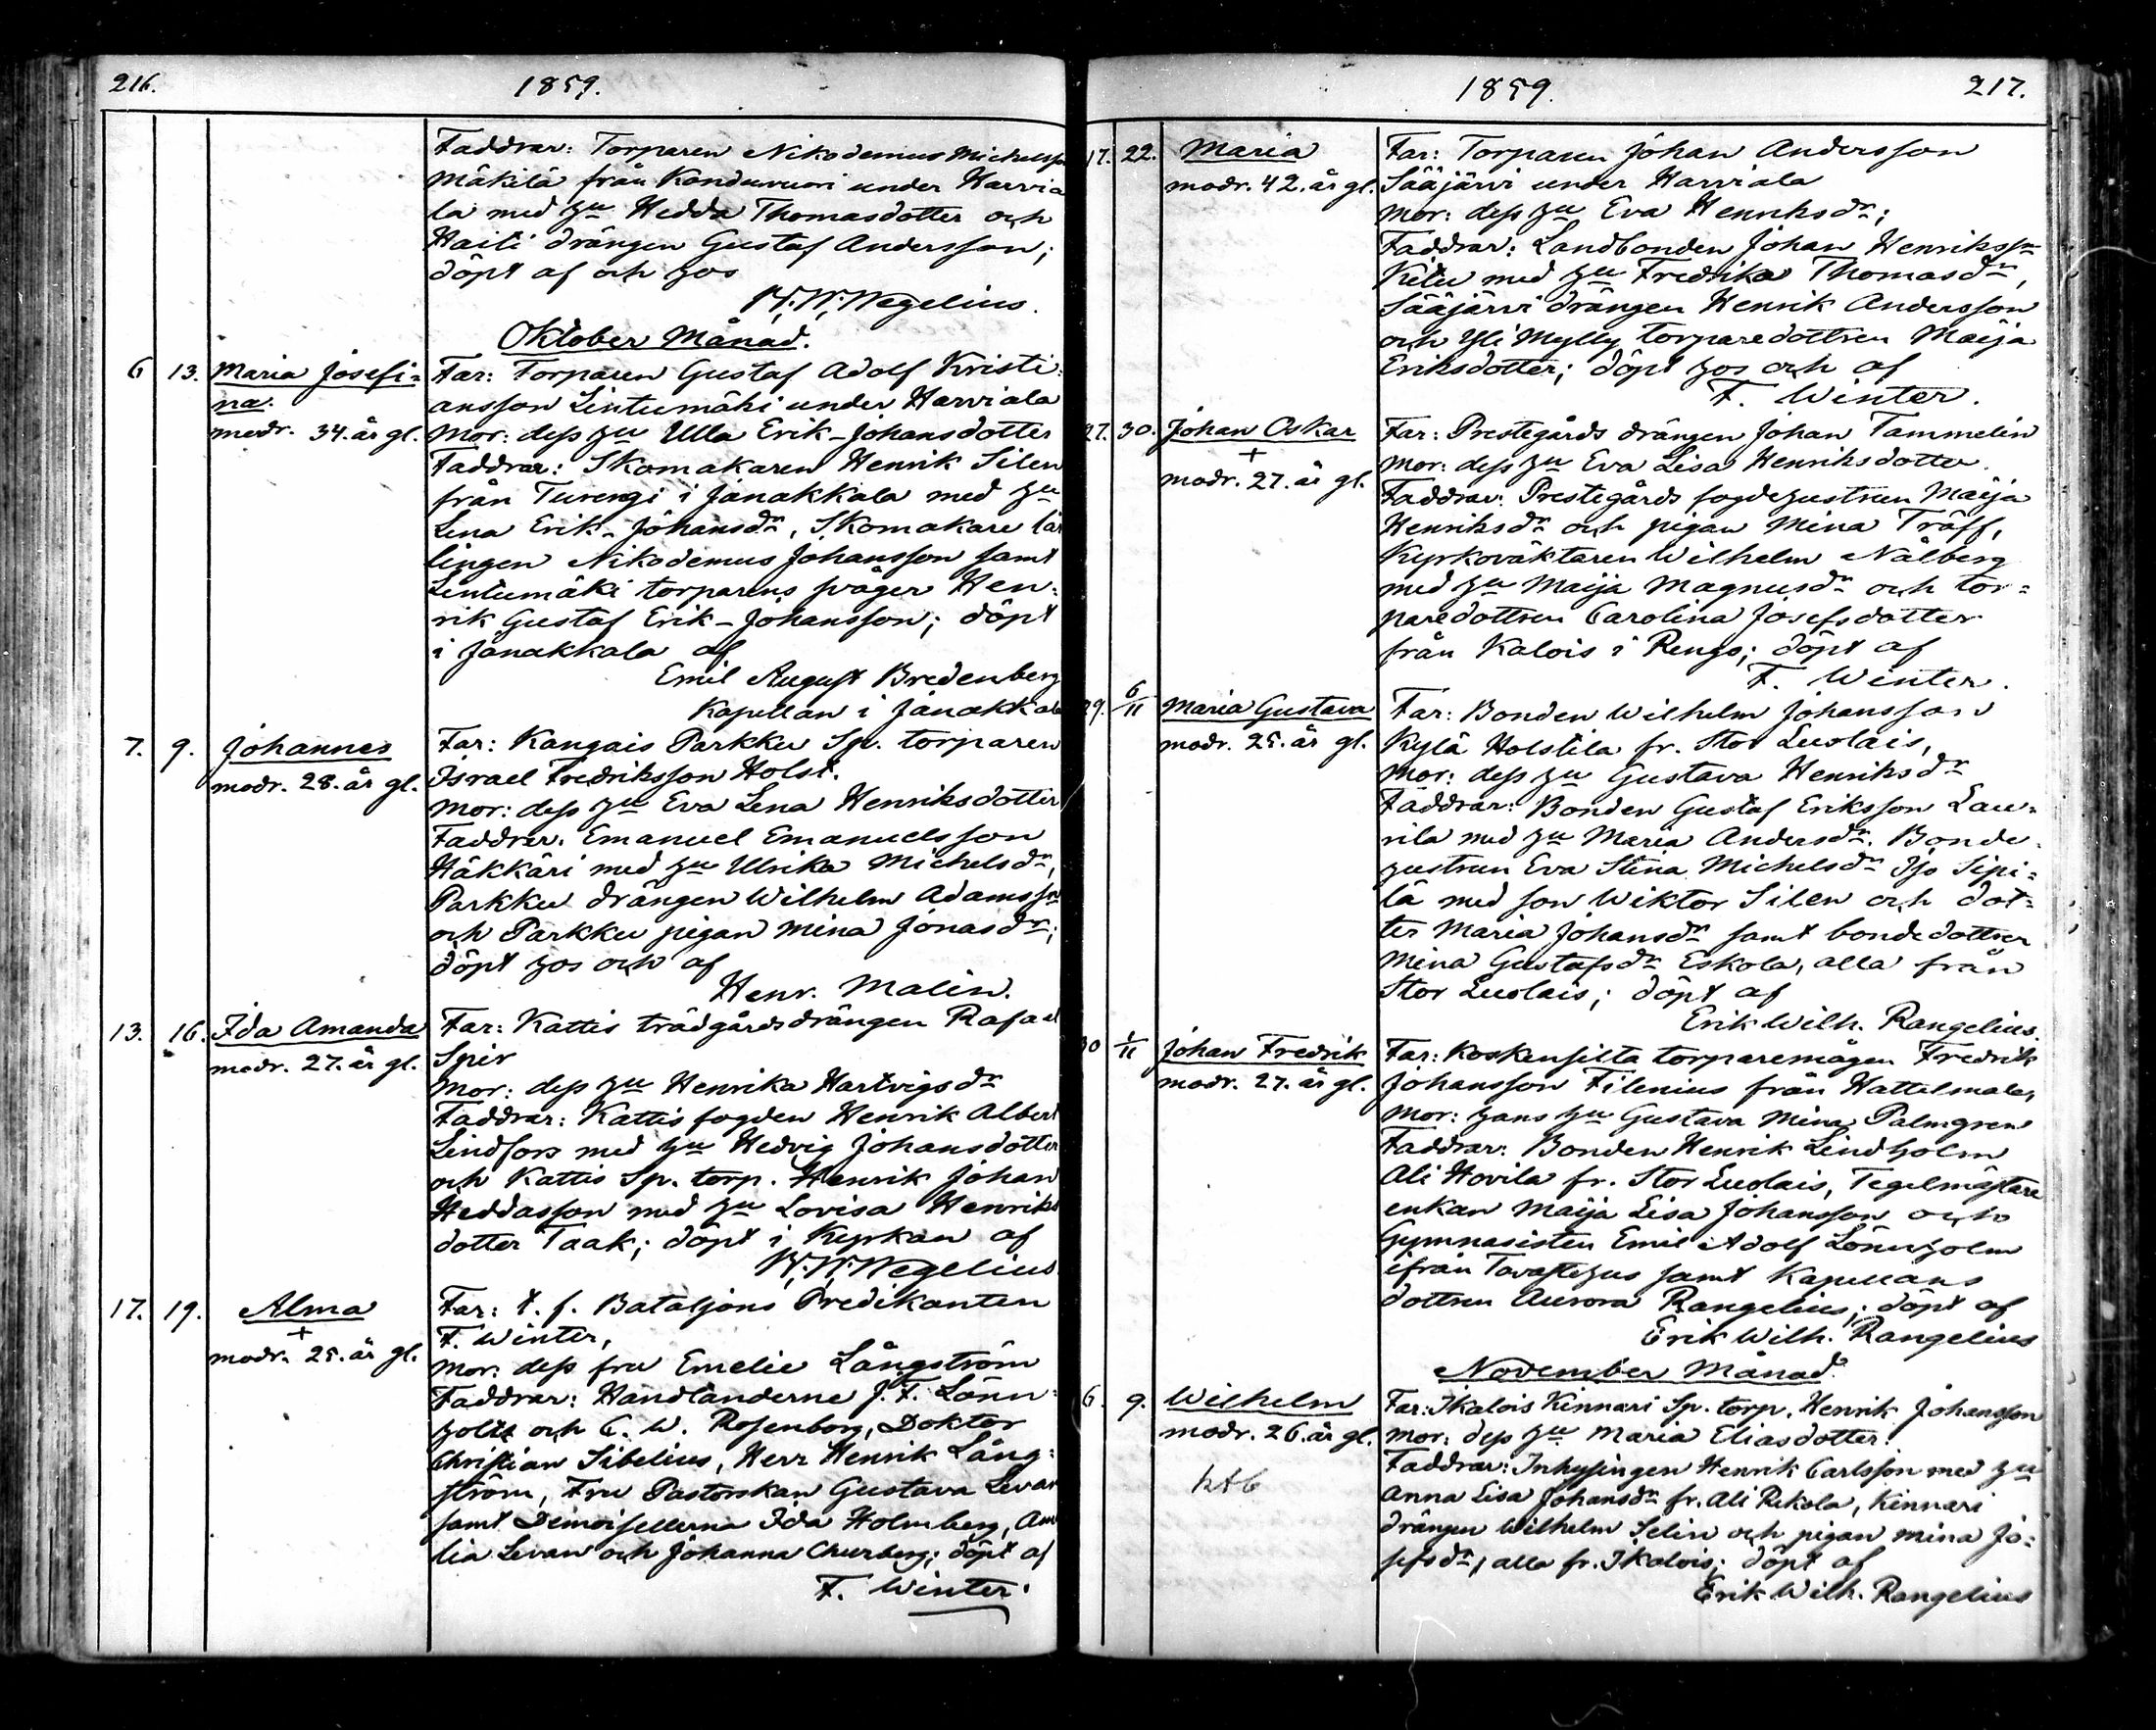 216.
1859.
Faddrar: Torparen Nikodemus Michelsson
Mäkilä från Konduvuori under Harvia
la med hu Hedda Thomasdotter och
Haiti drängen Gustaf Andersson;
döpt af och hos
W. W. Wegelius.
Oktober Månad.
6 13. Maria Josefi=
na.
modr. 34. år gl.
Far: Torparen Gustaf Adolf Kristi=
ansson Lintumäki under Harviala
Mor: dess hu Ulla Erik-Johansdotter
Faddrar: Skomakaren Henrik Silen
från Turengi i Janakkala med hu
Lena Erik-Johansdr, Skomakare lär
lingen Nikodemus Johansson samt
Lintumäki torparens svåger Hen=
rik Gustaf Erik-Johansson; döpt
i Janakkala af
Emil August Bredenberg
Kapellan i Janakkala
7. 9. Johannes
modr. 28. år gl.
Far: Kangais Parkku Sp. torparen
Israel Fredriksson Holst.
Mor: dess hu Eva Lena Henriksdotter
Faddrar. Emanuel Emanuelsson
Häkkäri med hu Ulrika Michelsdr,
Parkku drängen Wilhelm Adamsson
och Parkku pigan Mina Jonasdr;
döpt hos och af
Henr. Malin.
13. 16. Ida Amanda
modr. 27. år gl.
Far: Kattis trädgårdsdrängen Rafael
Spir
Mor: dess hu Henrika Hartvigsdr
Faddrar: Kattis fogden Henrik Albert
Lindfors med hu Hedvig Johansdotter
och Kattis Sp. torp. Henrik Johan
Heddasson med hu Lovisa Henriks
dotter Taak; döpt i Kyrkan af
W. W. Wegelius
17. 19. Alma
+
modr. 25. år gl.
Far: t. f. Bataljons Predikanten
F. Winter,
Mor: dess fru Emelie Långström
Faddrar: Handlanderne J. F. Lönn=
holtz och C. W. Rosenborg, Doktor
Christian Sibelius, Herr Henrik Lång=
ström, Fru Pastorskan Gustava Levan
samt Demoisellerna Ida Holmberg, Am
lia Levan och Johanna Churberg; döpt af
F. Winter.
1859.
217.
17. 22. Maria
modr. 42. år gl.
Far: Torparen Johan Andersson
Sääjärvi under Harviala
Mor: dess hu Eva Henriksdr;
Faddrar: Landbonden Johan Henriksson
Ketu med hu Fredrika Thomasdr,
Sääjärvi drängen Henrik Andersson
och Yli Mylly torparedottren Maija
Eriksdotter; döpt hos och af
F. Winter.
27. 30. Johan Oskar
+
modr. 27. år gl.
Far: Prestegårds drängen Johan Tammelin
Mor: dess hu Eva Lisa Henriksdotter.
Faddrar: Prestegårds fogdehustrun Maija
Henriksdr och pigan Mina Träff,
Kyrkoväktaren Wilhelm Nålberg
med hu Maija Magnusdr och tor=
paredottren Carolina Josefsdotter
från Kalois i Rengo; döpt af
F. Winter.
29. 6/11 Maria Gustava
modr. 25. år gl.
Far: Bonden Wilhelm Johansson
Kylä Holstila fr. Stor Luolais,
Mor: dess hu Gustava Henriksdr
Faddrar: Bonden Gustaf Eriksson Lau=
rila med hu Maria Andersdr. Bonde=
hustrun Eva Stina Michelsdr Iso Sipi=
lä med son Wiktor Silen och dot=
ter Maria Johansdr samt bondedottren
Mina Gustafsdr Eskola, alla från
Stor Luolais; döpt af
Erik Wilh. Rangelius.
30 1/11 Johan Fredrik
modr. 27. år gl.
Far: Koskensilta torparemågen Fredrik
Johansson Filenius från Hattelmala,
Mor: hans hu Gustava Mina Palmgren
Faddrar: Bonden Henrik Lindholm
Ali Hovila fr. Stor Luolais, Tegelmästare
enkan Maija Lisa Johansson och
Gymnasisten Emil Adolf Lönnholm
ifrån Tavastehus samt Kapellans
dottren Aurora Rangelius; döpt af
Erik Wilh. Rangelius
November Månad.
6. 9. Wilhelm
modr. 26. år gl.
Far: Ikalois Kinnari Sp. torp. Henrik Johansson
Mor: dess hu Maria Eliasdotter.
Faddrar: Inhysingen Henrik Carlsson med hu
Anna Lisa Johansdr fr. Ali Rekola, Kinnari
drängen Wilhelm Selin och pigan Mina Jo=
sefsdr, alla fr. Ikalois; döpt af
Erik Wilh. Rangelius